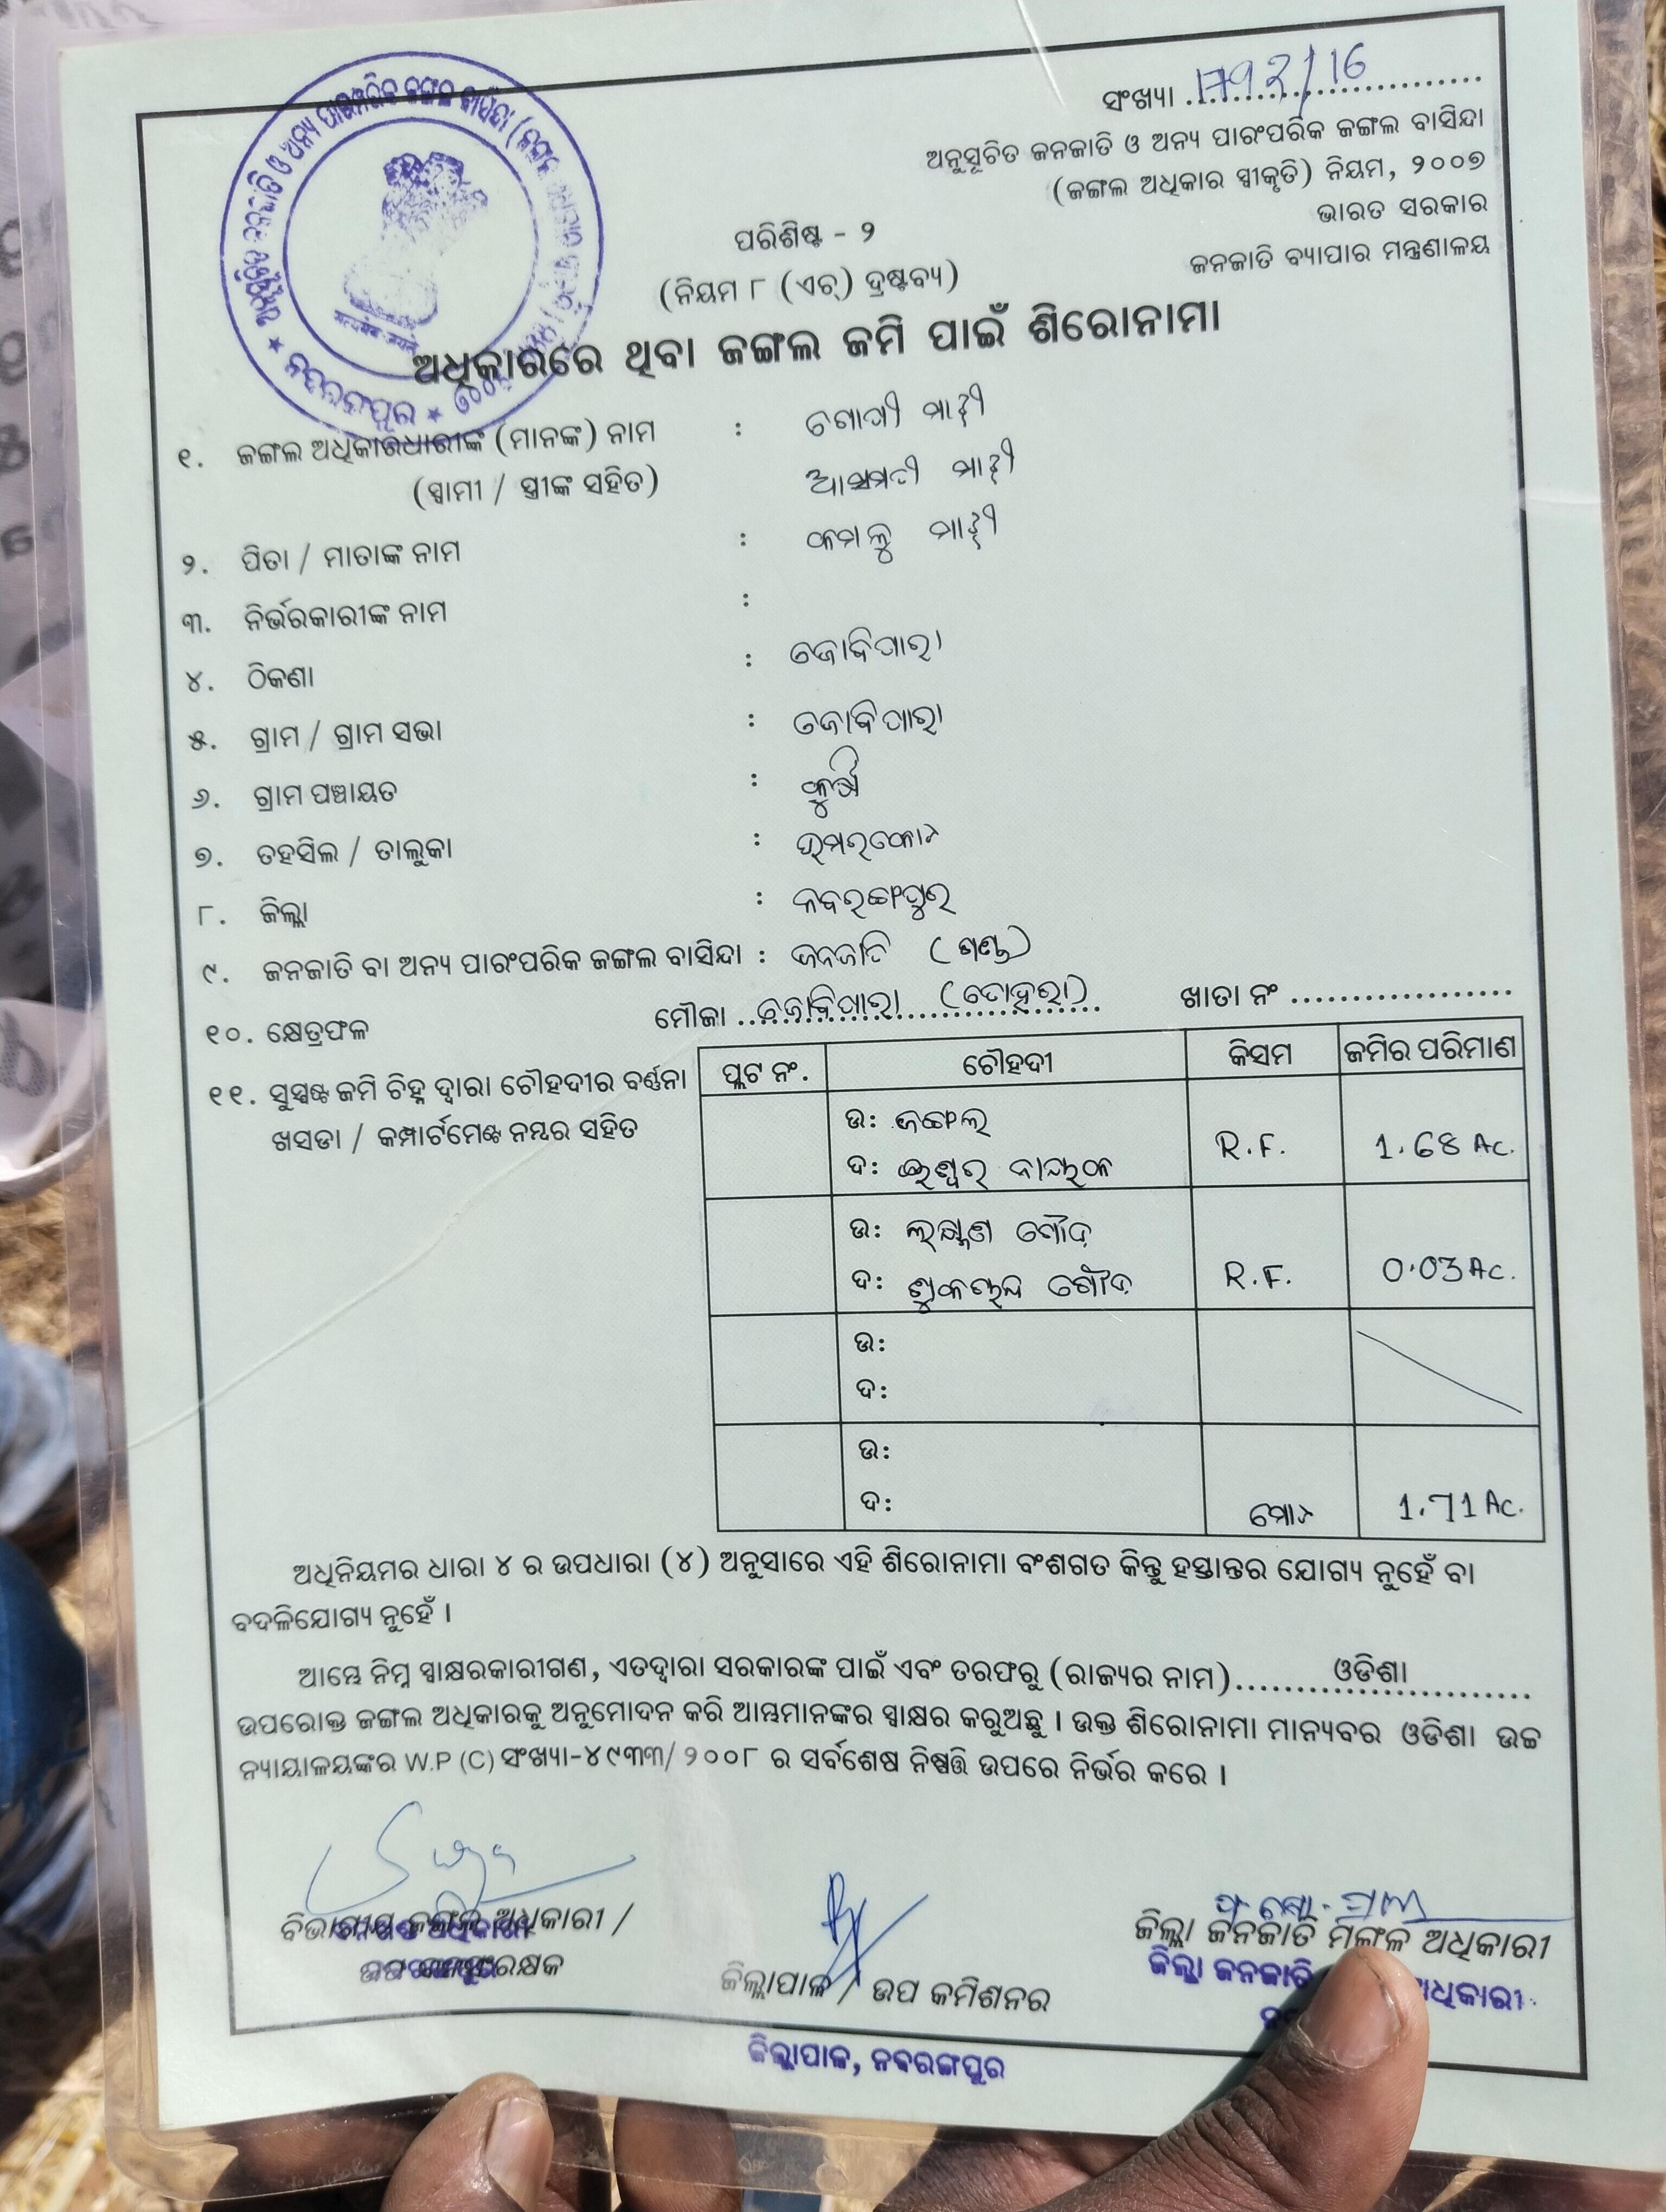 ସଂଖ୍ୟା 1792/16
ଅନୁସୂଚିତ ଜନଜାତି ଓ ଅନ୍ୟ ପାରଂପରିକ ଜଙ୍ଗଲ ବାସିନ୍ଦା
(ଜଙ୍ଗଲ ଅଧିକାର ସ୍ୱୀକୃତି) ନିୟମ, ୨୦୦୭
ଭାରତ ସରକାର
ଜନଜାତି ବ୍ୟାପାର ମନ୍ତ୍ରଣାଳୟ
ପରିଶିଷ୍ଟ - ୨
(ନିୟମ ୮ (ଏଚ୍) ଦ୍ରଷ୍ଟବ୍ୟ)
ଅଧିକାରରେ ଥିବା ଜଙ୍ଗଲ ଜମି ପାଇଁ ଶିରୋନାମା
୧. ଜଙ୍ଗଲ ଅଧିକାରଧାରୀଙ୍କ (ମାନଙ୍କ) ନାମ : ମାଝୀ
(ସ୍ୱାମୀ / ସ୍ତ୍ରୀଙ୍କ ସହିତ) ମାଝୀ
୨. ପିତା / ମାତାଙ୍କ ନାମ : ମାଝୀ
୩. ନିର୍ଭରକାରୀଙ୍କ ନାମ :
୪. ଠିକଣା : ଜୋବିପାରା
୫. ଗ୍ରାମ / ଗ୍ରାମ ସଭା : ଜୋବିପାରା
୬. ଗ୍ରାମ ପଞ୍ଚାୟତ :
୭. ତହସିଲ / ତାଲୁକା : ଉମରକୋଟ
୮. ଜିଲ୍ଲା : ନବରଙ୍ଗପୁର
୯. ଜନଜାତି ବା ଅନ୍ୟ ପାରଂପରିକ ଜଙ୍ଗଲ ବାସିନ୍ଦା : ଜନଜାତି (ଗଣ୍ଡ)
୧୦. କ୍ଷେତ୍ରଫଳ ମୌଜା ଜୋବିପାରା ଖାତା ନଂ
୧୧. ସୁସ୍ପଷ୍ଟ ଜମି ଚିହ୍ନ ଦ୍ୱାରା ଚୌହଦୀର ବର୍ଣ୍ଣନା
ଖସଡା / କମ୍ପାର୍ଟମେଣ୍ଟ ନମ୍ବର ସହିତ
ପ୍ଲଟ ନଂ. ଚୌହଦୀ କିସମ ଜମିର ପରିମାଣ
ଉଃ ଜଙ୍ଗଲ
ଦଃ ଈଶ୍ୱର ନାୟକ R.F. 1.68 Ac.
ଉଃ ଲକ୍ଷ୍ମଣ ଗୌଡ
ଦଃ ଗୌଡ R.F. 0.03 Ac.
ଉଃ
ଦଃ
ଉଃ
ଦଃ ମୋଟ 1.71 Ac.
ଅଧିନିୟମର ଧାରା ୪ ର ଉପଧାରା (୪) ଅନୁସାରେ ଏହି ଶିରୋନାମା ବଂଶଗତ କିନ୍ତୁ ହସ୍ତାନ୍ତର ଯୋଗ୍ୟ ନୁହେଁ ବା
ବଦଳିଯୋଗ୍ୟ ନୁହେଁ ।
ଆମ୍ଭେ ନିମ୍ନ ସ୍ୱାକ୍ଷରକାରୀଗଣ, ଏତଦ୍ୱାରା ସରକାରଙ୍କ ପାଇଁ ଏବଂ ତରଫରୁ (ରାଜ୍ୟର ନାମ) ଓଡିଶା
ଉପରୋକ୍ତ ଜଙ୍ଗଲ ଅଧିକାରକୁ ଅନୁମୋଦନ କରି ଆମ୍ଭମାନଙ୍କର ସ୍ୱାକ୍ଷର କରୁଅଛୁ । ଉକ୍ତ ଶିରୋନାମା ମାନ୍ୟବର ଓଡିଶା ଉଚ୍ଚ
ନ୍ୟାୟାଳୟଙ୍କର W.P (C) ସଂଖ୍ୟା-୪୯୩୩/୨୦୦୮ ର ସର୍ବଶେଷ ନିଷ୍ପତ୍ତି ଉପରେ ନିର୍ଭର କରେ ।
ବିଭାଗୀୟ ଜଙ୍ଗଲ ଅଧିକାରୀ /
ଜିଲ୍ଲାପାଳ / ଉପ କମିଶନର
ଜିଲ୍ଲା ଜନଜାତି ମଙ୍ଗଳ ଅଧିକାରୀ
ଜିଲ୍ଲା ଜନଜାତି ଅଧିକାରୀ
ଜିଲ୍ଲାପାଳ, ନବରଙ୍ଗପୁର